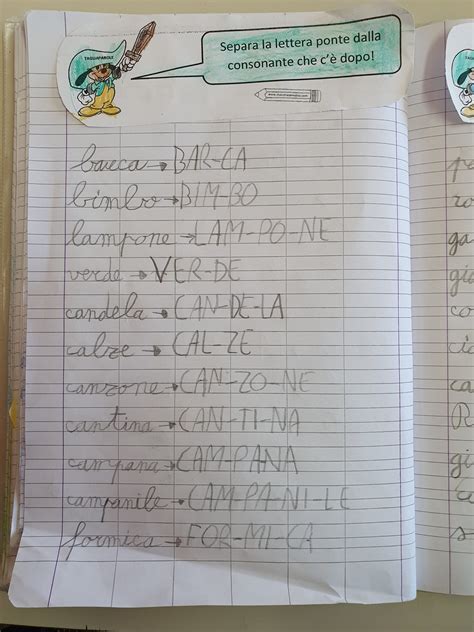 TAGLIAPAROLE
Separa la lettera ponte dalla
consonante che c'è dopo!
barca → BAR-CA
bimbo → BIM-BO
lampone → LAM-PO-NE
verde → VER-DE
candela → CAN-DE-LA
calze → CAL-ZE
canzone → CAN-ZO-NE
cantina → CAN-TI-NA
campana → CAM-PANA
campanile → CAM-PA-NI-LE
formica → FOR-MI-CA